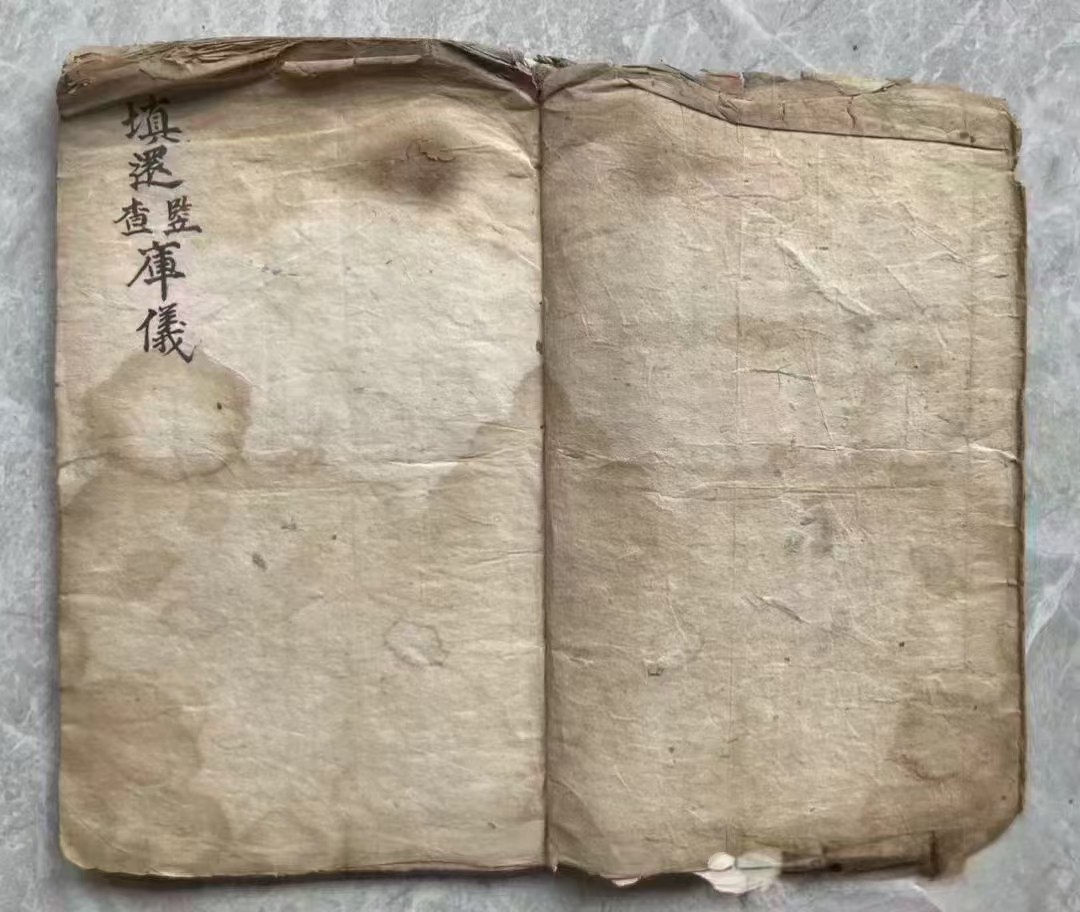 填還監查庫儀